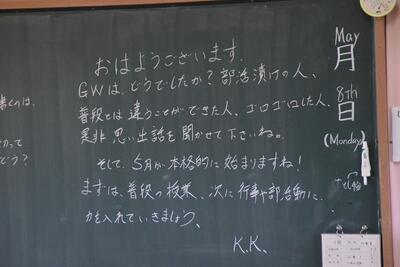 おはようございます.
GWは、どうでしたか？部活漬けの人、
普段とは違うことができた人、ゴロゴロした人、
是非 思い出話を聞かせて下さいね。
そして、5月が本格的に始まりますね!
まずは、普段の授業、次に行事や部活動に、
力を入れていきましょう、
K.K.
May
月
8th
日
(Monday)